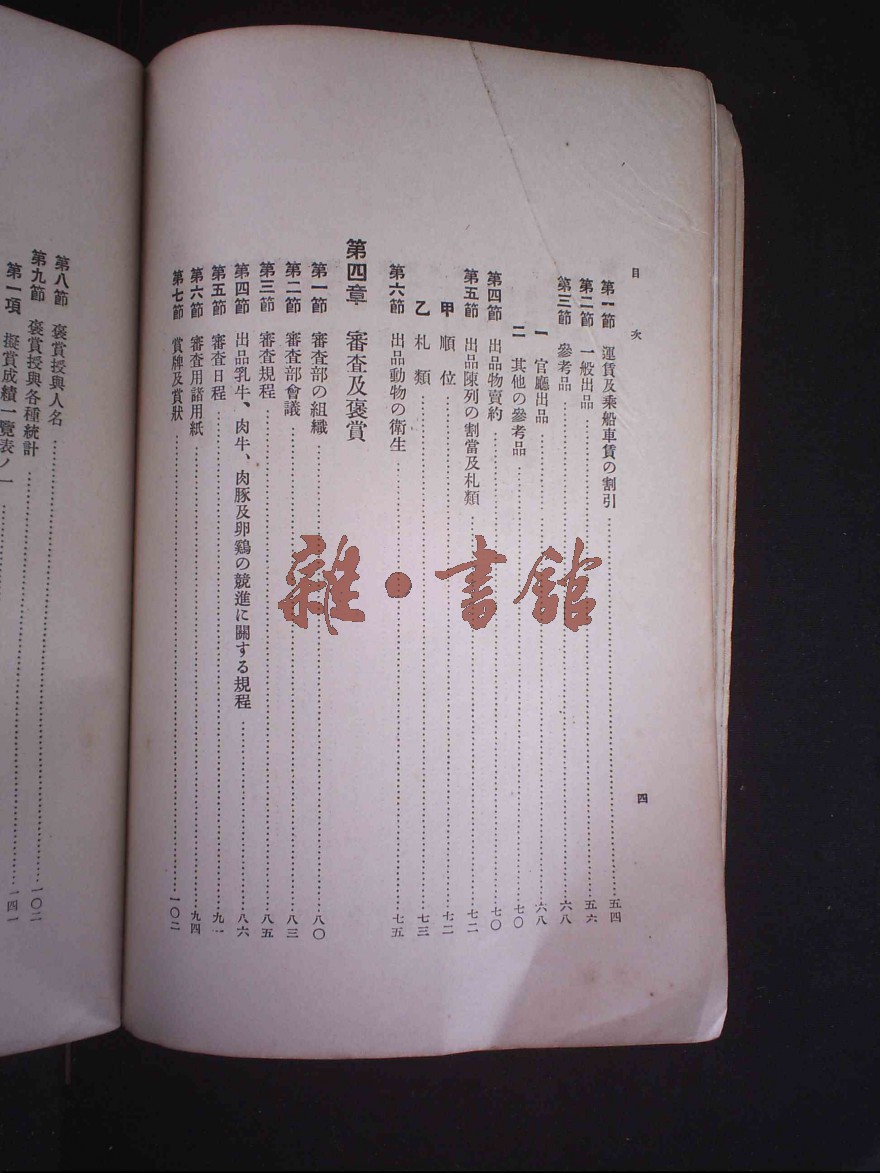 目次
四
第一節 運賃及乘船車賃の割引……五四
第二節 一般出品……五六
第三節 參考品……六八
一 官廳出品……六八
二 其他の參考品……七〇
第四節 出品物賣約……七〇
第五節 出品陳列の割當及札類……七二
甲 順位……七二
乙 札類……七三
第六節 出品動物の衞生……七五
第四章 審査及褒賞
第一節 審査部の組織……八〇
第二節 審査部會議……八三
第三節 審査規程……八五
第四節 出品乳牛、肉牛、肉豚及卵鷄の競進に關する規程……八六
第五節 審査日程……九一
第六節 審査用諸用紙……九四
第七節 賞牌及賞狀……一〇二
第八節 褒賞授與人名……一〇二
第九節 褒賞授與各種統計
第一項 擬賞成績一覽表ノ一……一四一
雜·書館